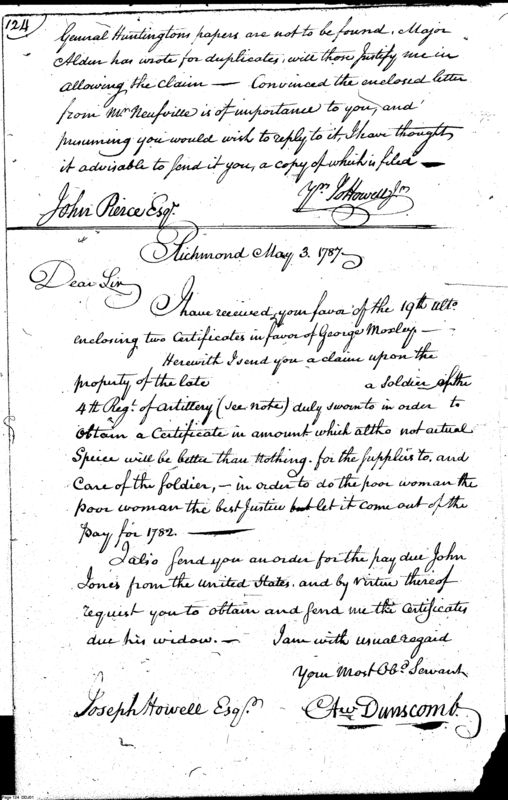 124
General Huntingtons papers are not to be found. Major
Alden has wrote for duplicates, will those Justify me in
allowing the claim — Convinced the enclosed letter
from Mr Neufville is of importance to you, and
presuming you would wish to reply to it, I have thought
it advisable to send it you, a copy of which is filed —
Yrs Jo Howell Jr
John Pierce Esqr
Richmond May 3. 1787
Dear Sir
I have received your favor of the 19th Ulto
enclosing two Certificates in favor of George Moxley —
Herewith I send you a claim upon the
property of the late a Soldier of the
4th Regt. of Artillery (see note) duly sworn to in order to
Obtain a Certificate in amount which altho not actual
Specie will be better than Nothing. for the supplies to. and
Care of the Soldier, — in order to do the poor woman the
poor woman the best Justice but let it come out of the
Pay for 1782. —
I also send you an order for the pay due John
Jones from the United States. and by Virtue thereof
request you to obtain and send me the Certificates
due his widow. — I am with usual regard
Your Most Obd Servant
Joseph Howell Esqr
Aw Dunscomb.
2
Page 124 DDJ01